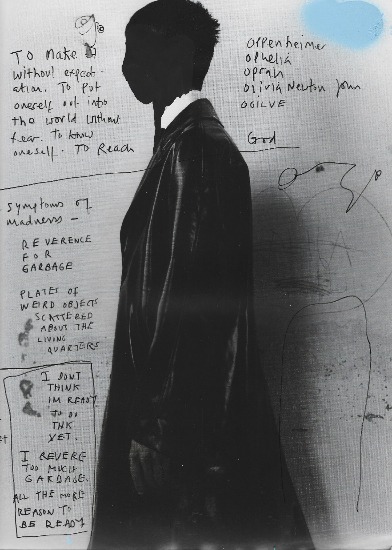 To make
without expect-
ation. To put
oneself out into
the world without
fear. To know
oneself. To Reach
Oppenheimer
Ophelia
Oprah
Olivia Newton John
OGILVE
God
Symptoms of
madness –
REVERENCE
FOR
GARBAGE
PLATES OF
WEIRD OBJECTS
SCATTERED
ABOUT THE
LIVING
QUARTERS
I DONT
THINK
IM READY
TO DO
THK
YET.
I REVERE
TOO MUCH
GARBAGE.
ALL THE MORE
REASON TO
BE READY